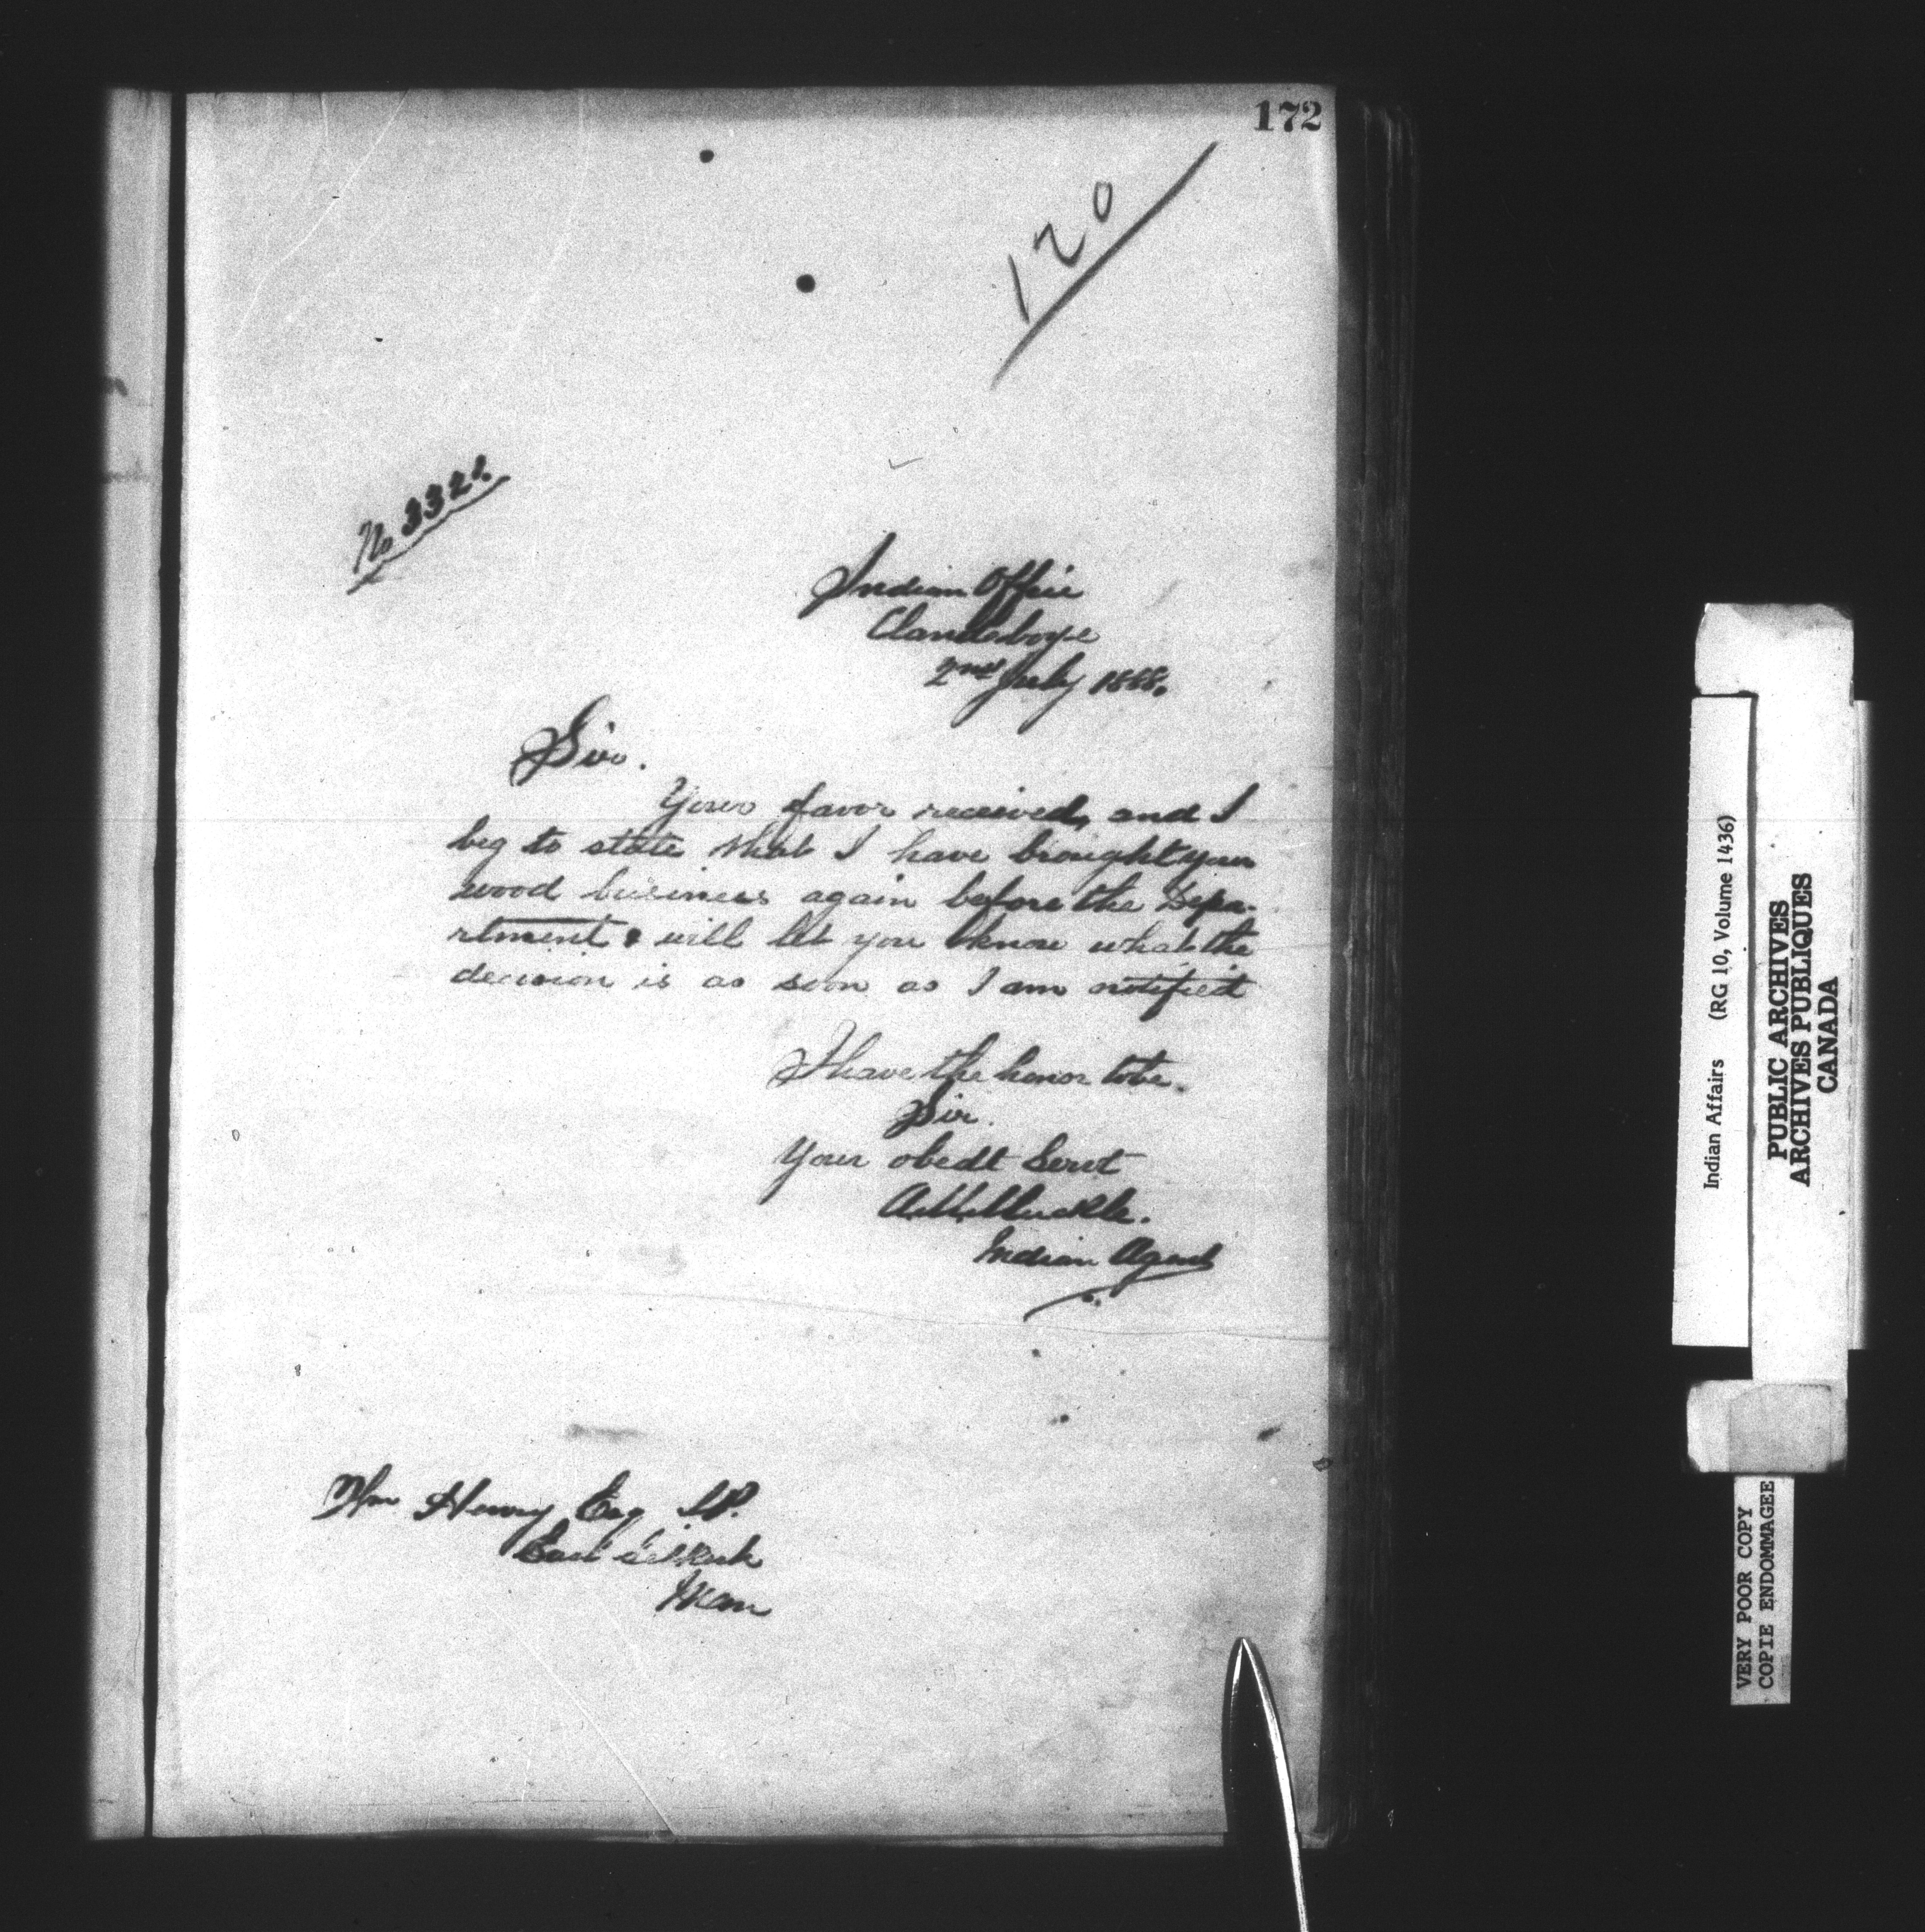 172
120
No 332/.
Indian Office
Clandeboye
2nd July 1888.
Sir.
Your favor received, and I
beg to state that I have brought your
wood business again before the Depa-
rtment & will let you know what the
decision is as soon as I am notified
I have the honor to be.
Sir.
Your obedt Servt
A. M. Muckle.
Indian Agent
Wm Henry Esq J.P.
East Selkirk
Man
Indian Affairs (RG 10, Volume 1436)
PUBLIC ARCHIVES
ARCHIVES PUBLIQUES
CANADA
VERY POOR COPY
COPIE ENDOMMAGEE